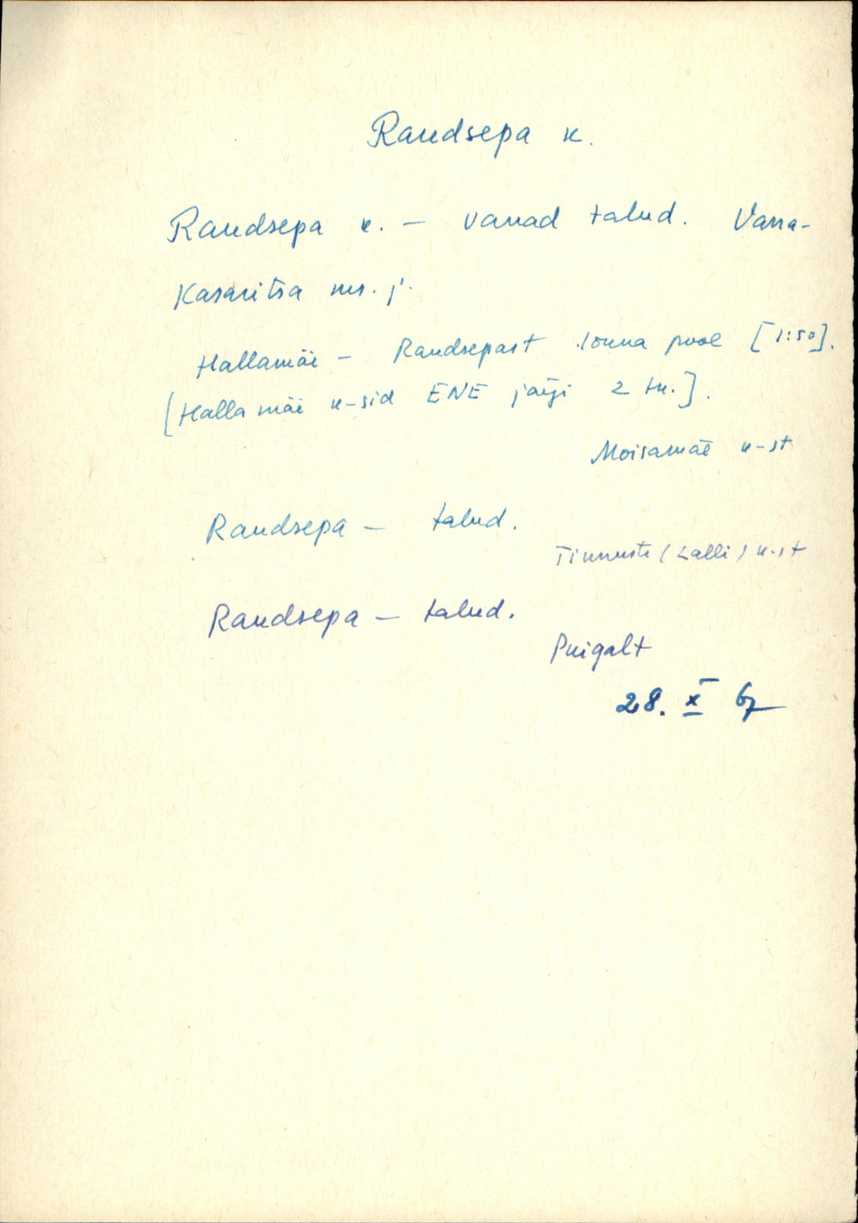 Raudsepa k.
Raudsepa k. – vanad talud. Vana-
Kasaritsa ms. j.
Hallamäe – Raudsepast lõuna pool [1:50].
[Hallamäe k-sid ENE järgi 2 tk.].
Moisamäe k-st
Raudsepa – talud.
Tinnuste (Lalli) k-st
Raudsepa – talud.
Puigalt
28. X 67